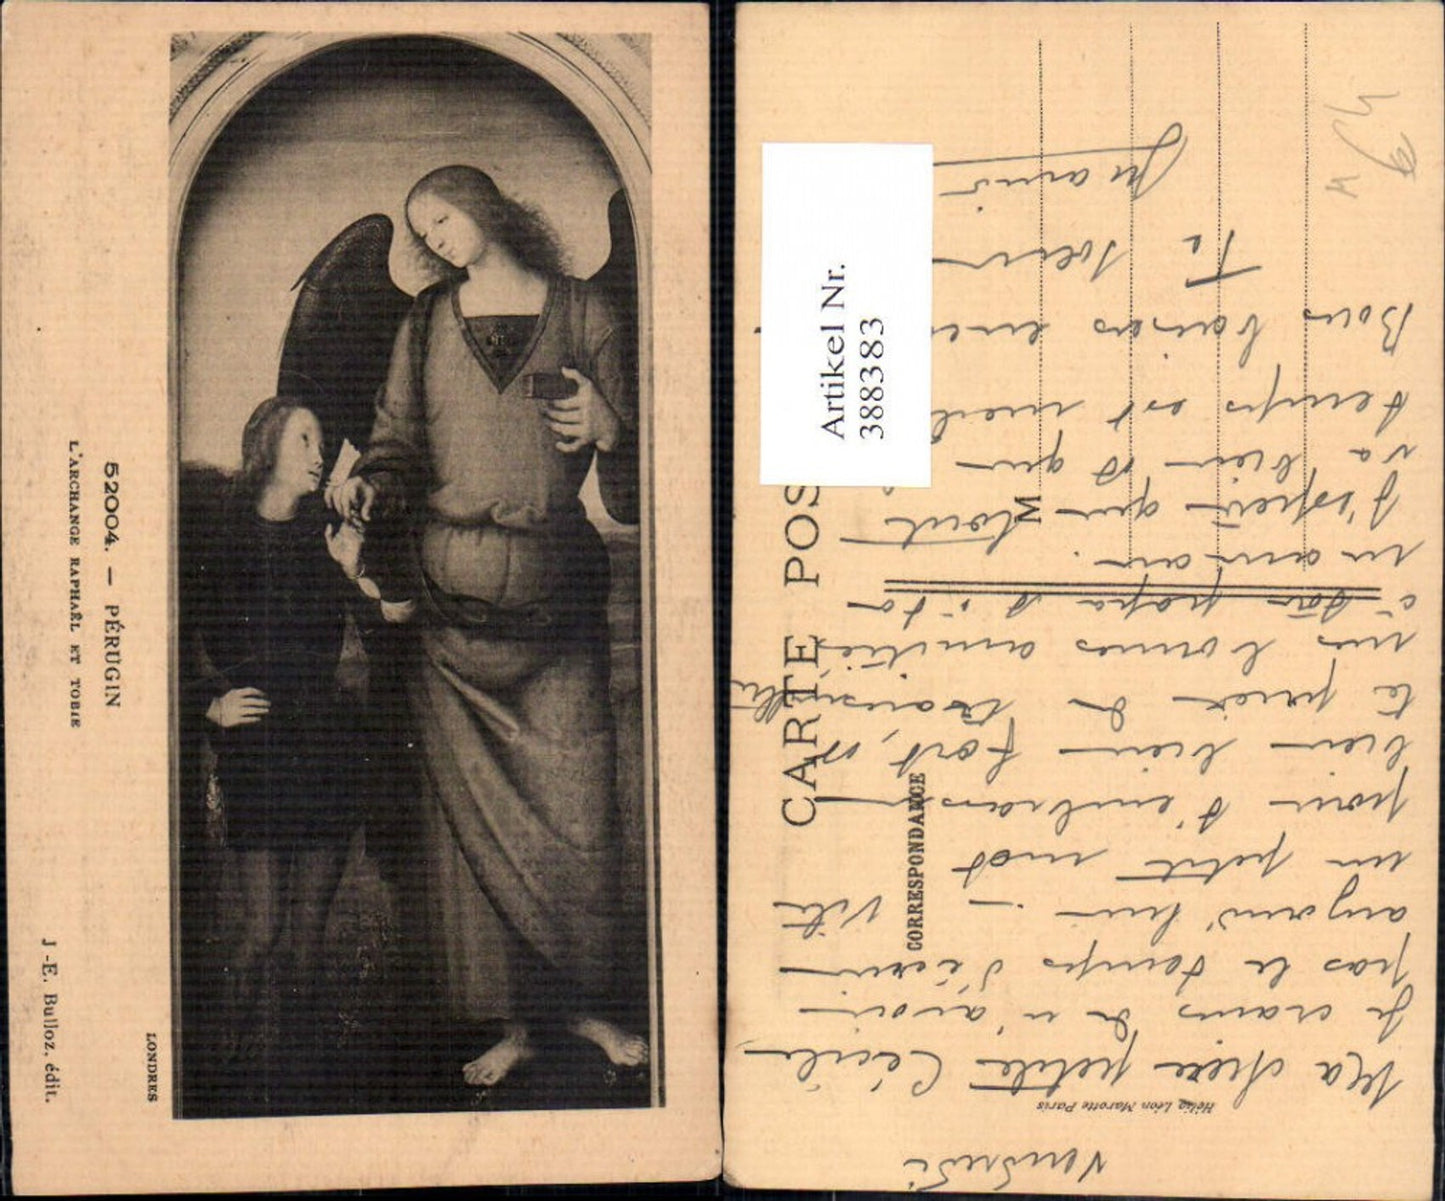 52004. — PÉRUGIN
L'ARCHANGE RAPHAËL ET TOBIE
LONDRES
J.-E. Bulloz, édit.
Artikel Nr.
388383
CARTE POS
CORRESPONDANCE
M
Hélio Léon Marotte Paris
Vendredi
Ma chère petite Cécile
Je crains de n'avoir
pas le temps d'écrire
aujourd'hui - Vite
un petit mot
pour t'embrasser
bien bien fort,
te prier de
mes bonnes amitiés
à ton papa & à ta
maman.
J'espère que tout
va bien & que
temps est
Bons baisers
Ta